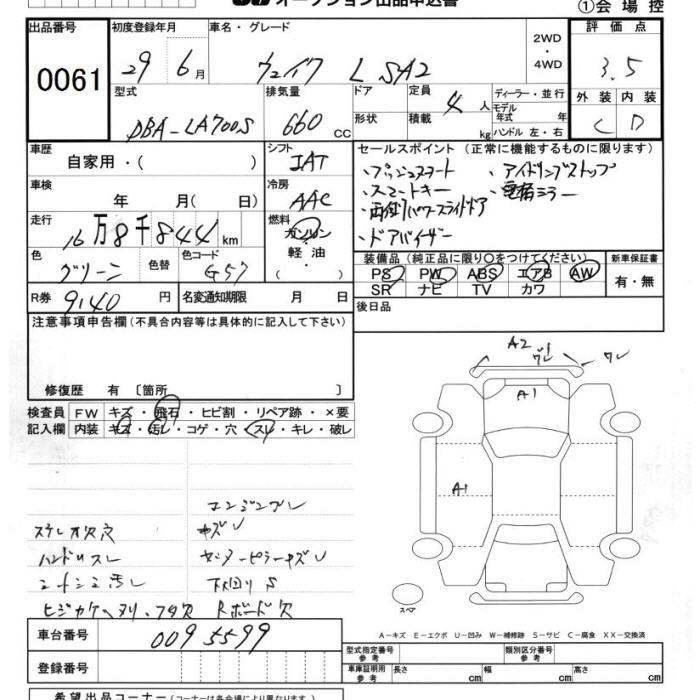 オークション出品申込書
①会場控
出品番号
0061
初度登録年月
29 6月
車名・グレード
ウェイク L SA2
2WD
・
4WD
評価点
3.5
型式
DBA-LA700S
排気量
660 CC
ドア
形状
定員
4 人
積載
kg
ディーラー・並行
モデル
年式 年
ハンドル 左・右
外装
C
内装
D
車歴
自家用・( )
シフト
IAT
車検
年 月( 日)
冷房
AAC
走行
16万8千844km
燃料
ガソリン
・
軽油
・
( )
色
グリーン
色替
色コード
G57
R券
9,140 円
名変通知期限 月 日
セールスポイント(正常に機能するものに限ります)
・プッシュスタート ・アイドリングストップ
・スマートキー ・電格ミラー
・両側パワースライドドア
・ドアバイザー
装備品(純正品に限り○をつけてください)
PS PW ABS エアB AW
SR ナビ TV カワ
新車保証書
有・無
後日品
注意事項申告欄(不具合内容等は具体的に記入して下さい)
修復歴 有 〔箇所 〕
検査員
記入欄
FW キズ・飛石・ヒビ割・リペア跡・×要
内装 キズ・汚レ・コゲ・穴・スレ・キレ・破レ
A2 ワレ ワレ
A1
A1
エンジンブレ
ステレオ欠穴 キズU
ハンドルスレ センターピラーキズU
シートシミ汚レ 下廻りS
ヒジカケヘタリ、フタ欠 Rボード欠
スペア
A-キズ E-エクボ U-凹み W-補修跡 S-サビ C-腐食 XX-交換済
車台番号
0095599
登録番号
型式指定番号
参考
類別区分番号
参考
車庫証明用
参考
長さ cm
幅 cm
高さ cm
希望出品コーナー(コーナーは各会場により異なります)